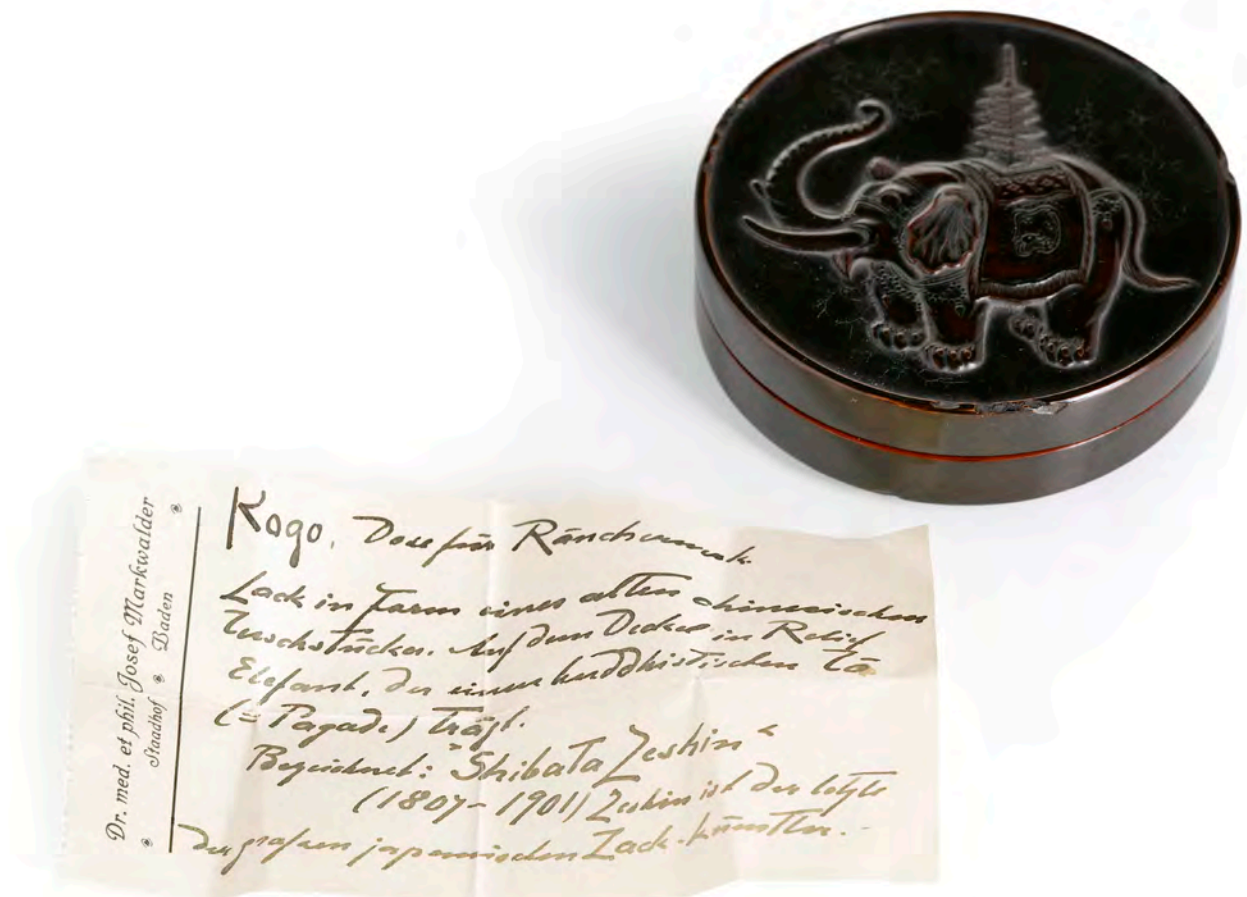 Dr. med. et phil. Josef Markwalder
Staadhof * Baden
Kogo. Dose für Räucherwerk.
Lack in Form eines alten chinesischen
Tuschstückes. Auf dem Deckel in Relief
Elefant, der einen buddhistischen Tō
(= Pagode) trägt.
Bezeichnet: "Shibata Zeshin"
(1807-1901) Zeshin ist der letzte
der grossen japanischen Lack-künstler.-